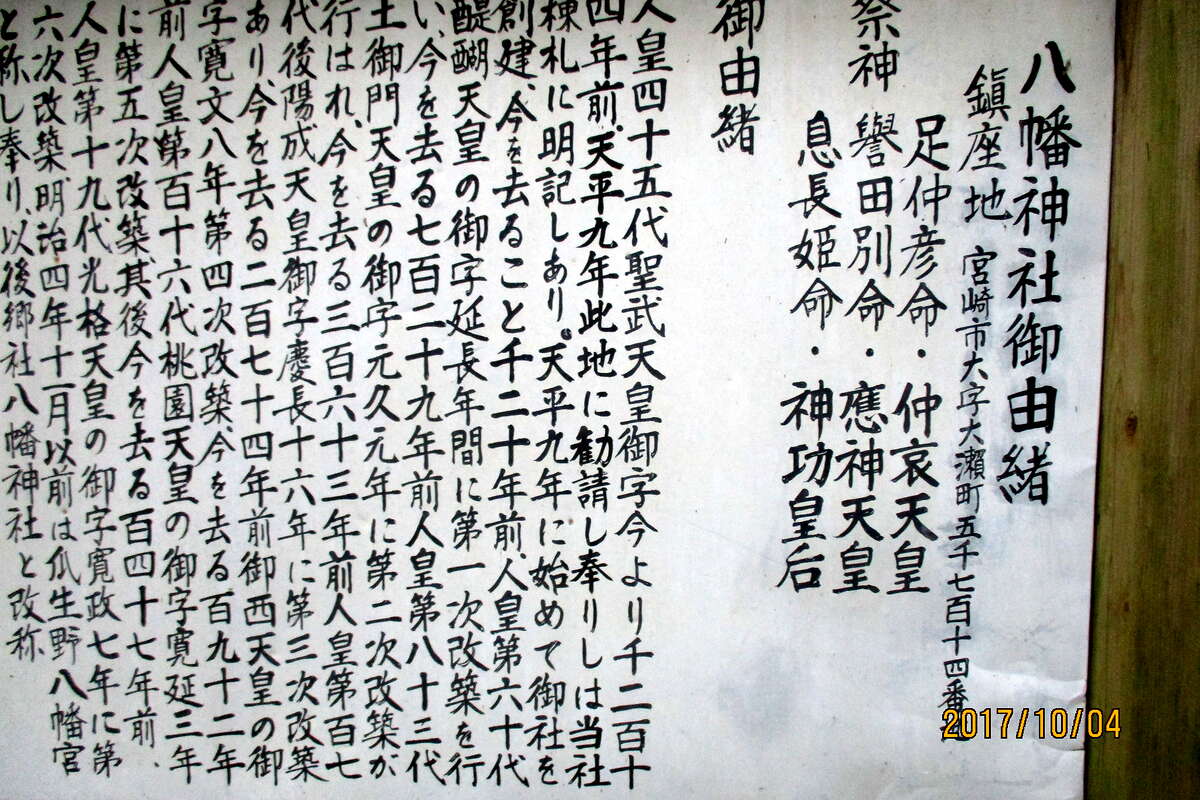 八幡神社御由緒
鎮座地 宮崎市大字大瀬町五千七百十四番地
足仲彦命・仲哀天皇
祭神 譽田別命・應神天皇
息長姫命・神功皇后
御由緒
人皇四十五代聖武天皇御字今より千二百十
四年前、天平九年此地に勧請し奉りしは当社
棟札に明記しあり。天平九年に始めて御社を
創建、今を去ること千二十年前、人皇第六十代
醍醐天皇の御字延長年間に第一次改築を行
い、今を去る七百二十九年前人皇第八十三代
土御門天皇の御字元久元年に第二次改築が
行はれ、今を去る三百六十三年前人皇第百七
代後陽成天皇御字慶長十六年に第三次改築
あり、今を去る二百七十四年前御西天皇の御
字寛文八年第四次改築、今を去る百九十二年
前人皇第百十六代桃園天皇の御字寛延三年
に第五次改築、其後今を去る百四十七年前、
人皇第十九代光格天皇の御字寛政七年に第
六次改築明治四年十一月以前は瓜生野八幡宮
と称し奉り、以後郷社八幡神社と改称
2017/10/04